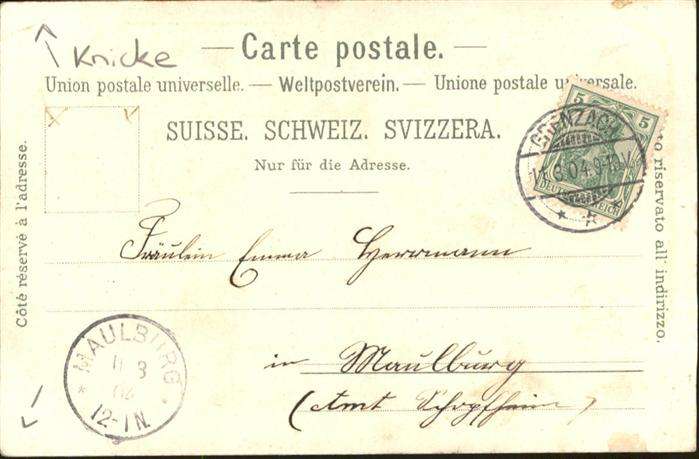 Knicke
— Carte postale. —
Union postale universelle. — Weltpostverein. — Unione postale
SUISSE. SCHWEIZ. SVIZZERA.
Nur für die Adresse.
Côté réservé à l'adresse.
riservato all' indirizzo.
5 5
DEUTSCHES REICH
GRENZACH
11.8.04.9-10V.
Fräulein Emma Herrmann
in Maulburg
(Amt Schopfheim)
MAULBURG
11 8
04
12-1N.